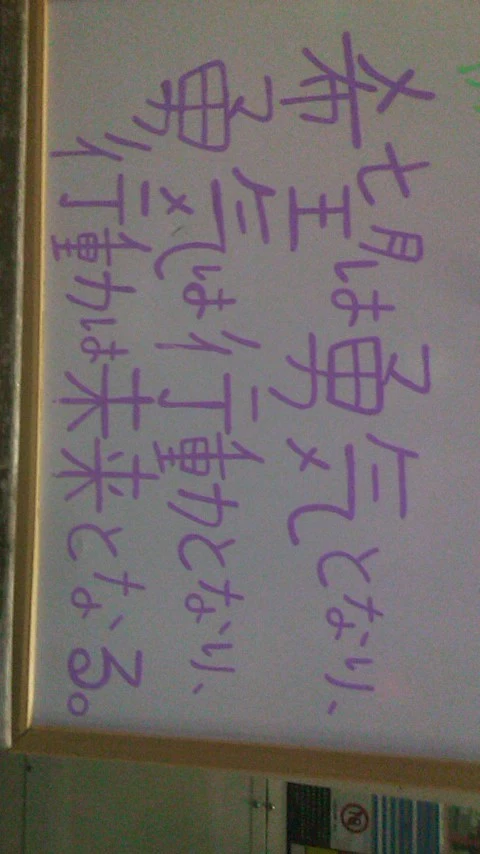 希望は勇気となり、
勇気は行動となり、
行動は未来となる。